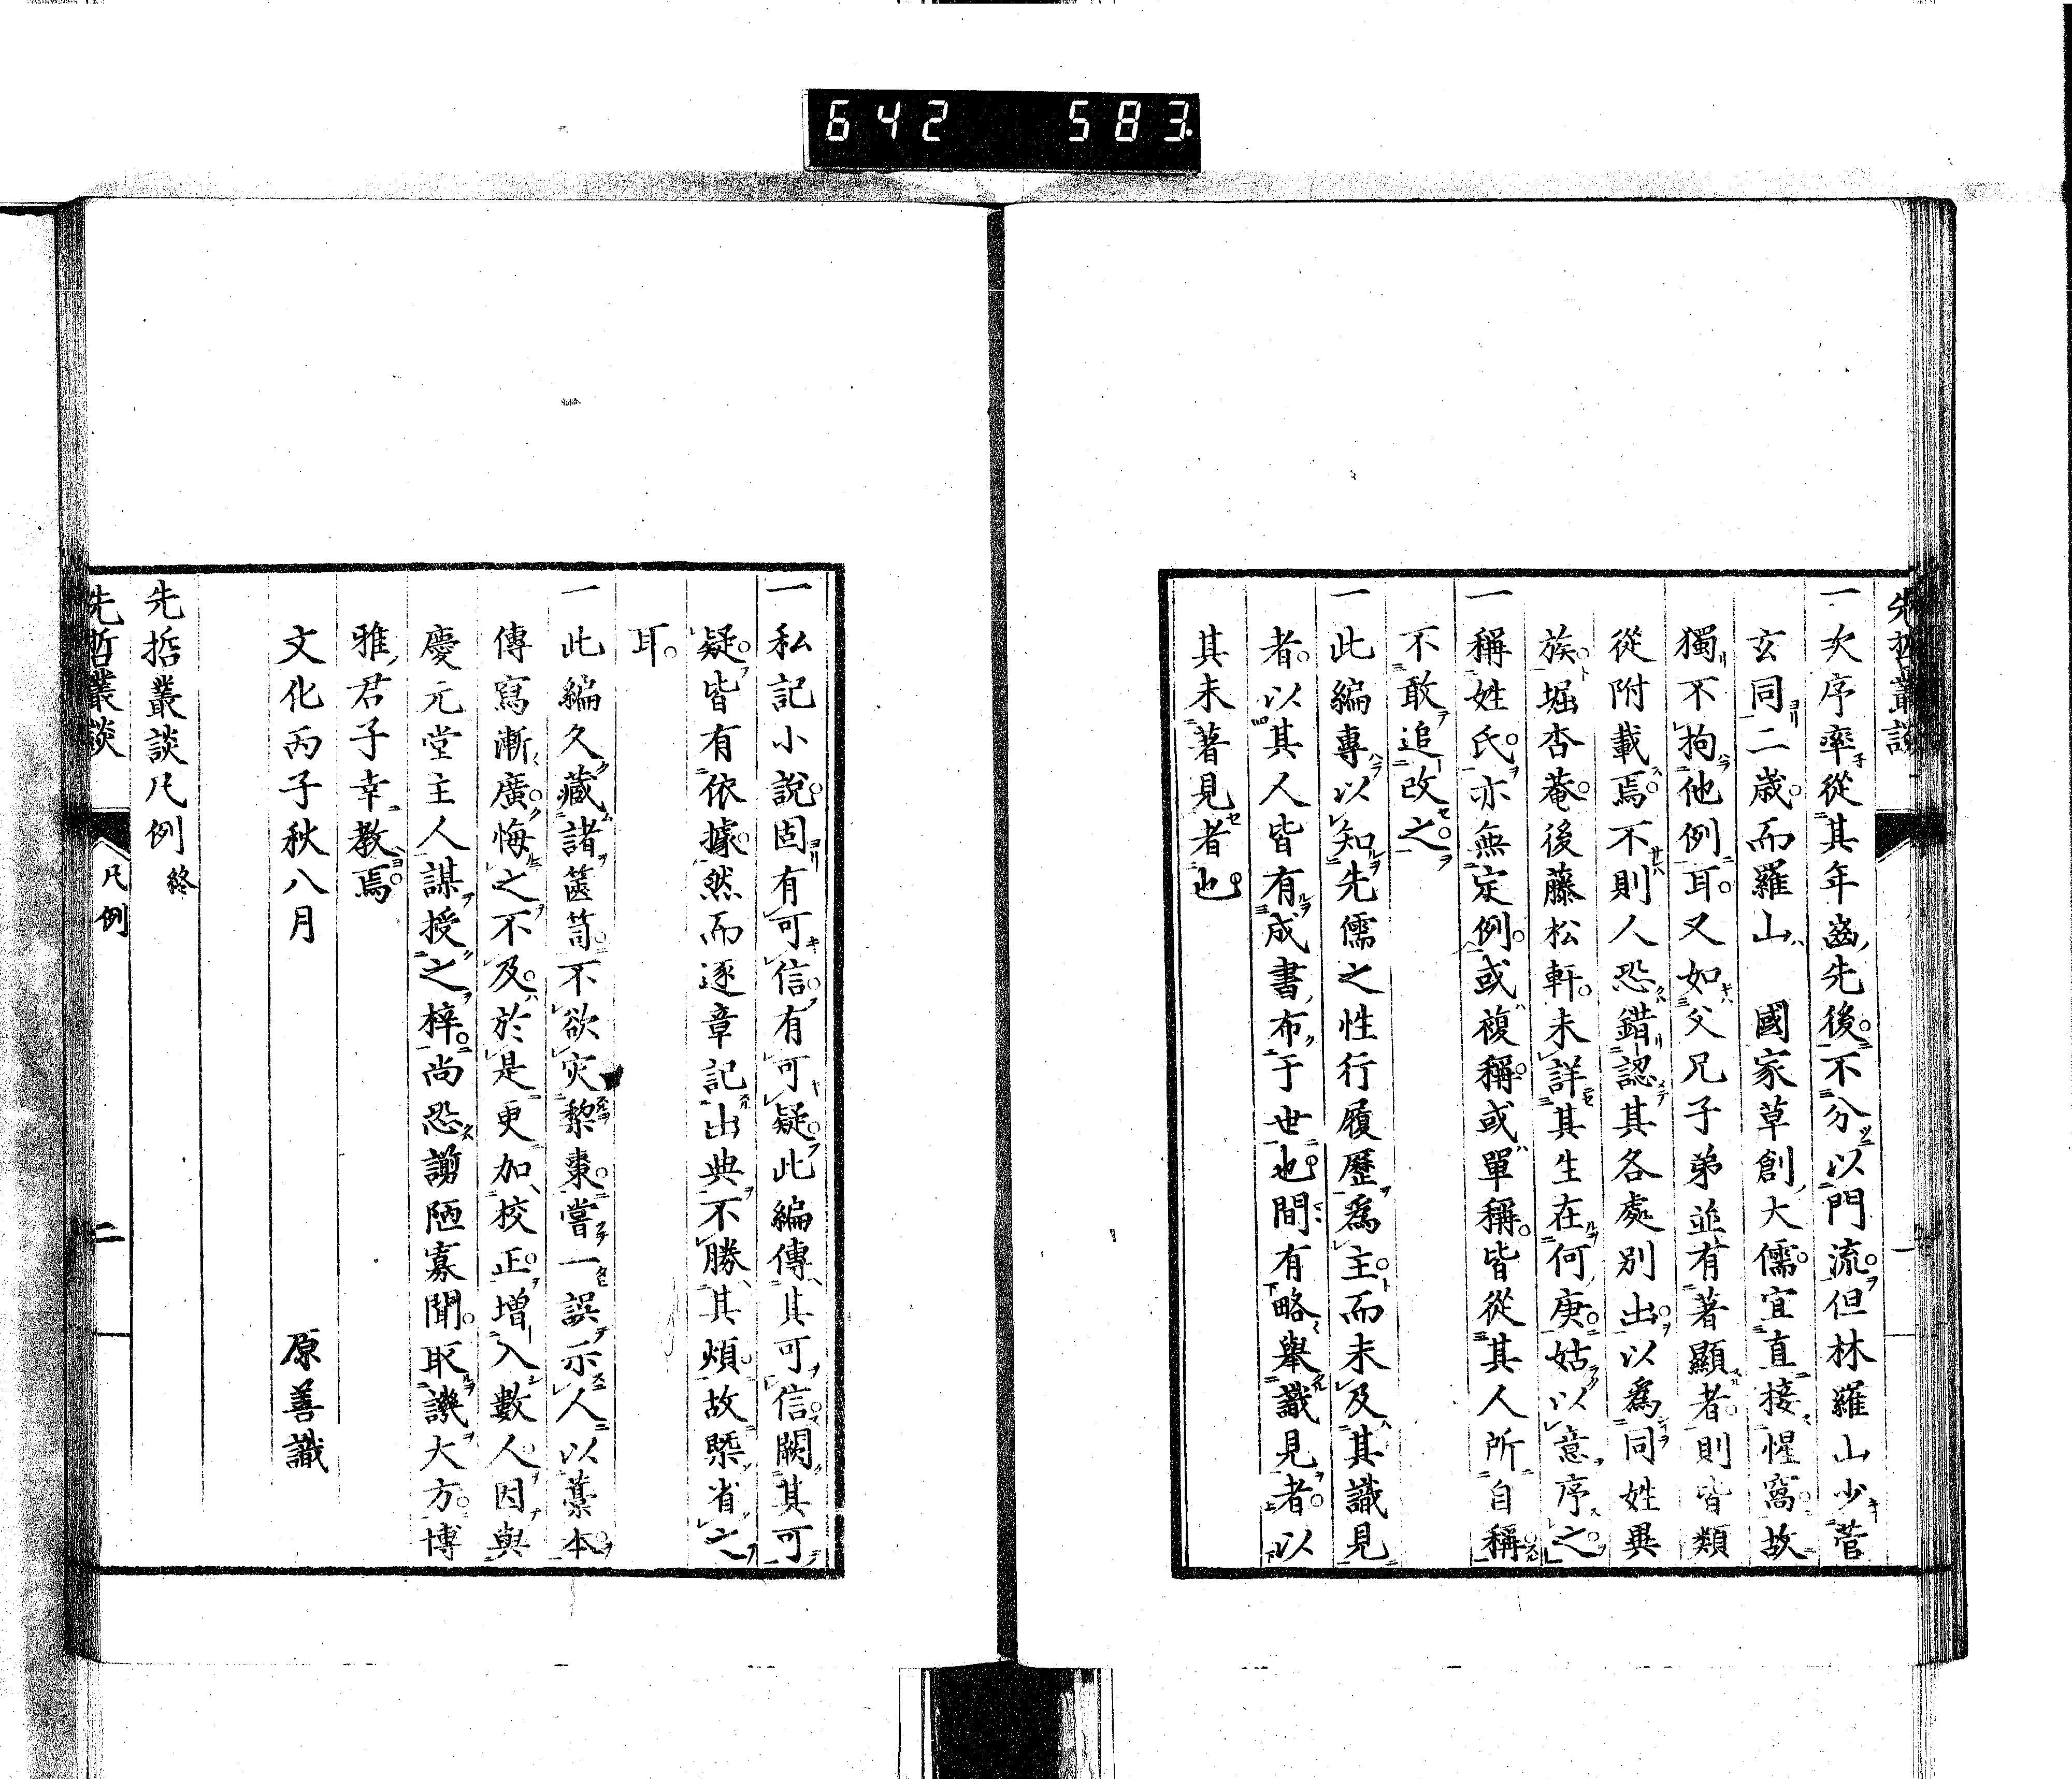 642 583.
先哲叢談
一次序率從其年齒先後不分以門流但林羅山少菅
玄同二歲而羅山 國家草創大儒宜直接惺窩故
獨不拘他例耳又如父兄子弟並有著顯者則皆類
從附載焉不則人恐錯認其各處別出以爲同姓異
族堀杏菴後藤松軒未詳其生在何庚姑以意序之
一稱姓氏亦無定例或複稱或單稱皆從其人所自稱
不敢追改之
一此編專以知先儒之性行履歷爲主而未及其識見
者以其人皆有成書布于世也間有略舉識見者以
其未著見者也
一私記小說固有可信有可疑此編傳其可信闕其可
疑皆有依據然而逐章記出典不勝其煩故槩省之
耳
一此編久藏諸篋笥不欲灾梨棗嘗一誤示人以藁本
傳寫漸廣悔之不及於是更加校正增入數人因與
慶元堂主人謀授之梓尚恐謭陋寡聞取譏大方博
雅君子幸教焉
文化丙子秋八月 原善識
先哲叢談凡例 終
先哲叢談 凡例 二